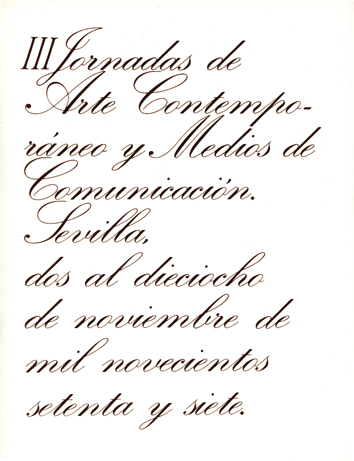 III Jornadas de
Arte Contempo-
ráneo y Medios de
Comunicación.
Sevilla,
dos al dieciocho
de noviembre de
mil novecientos
setenta y siete.